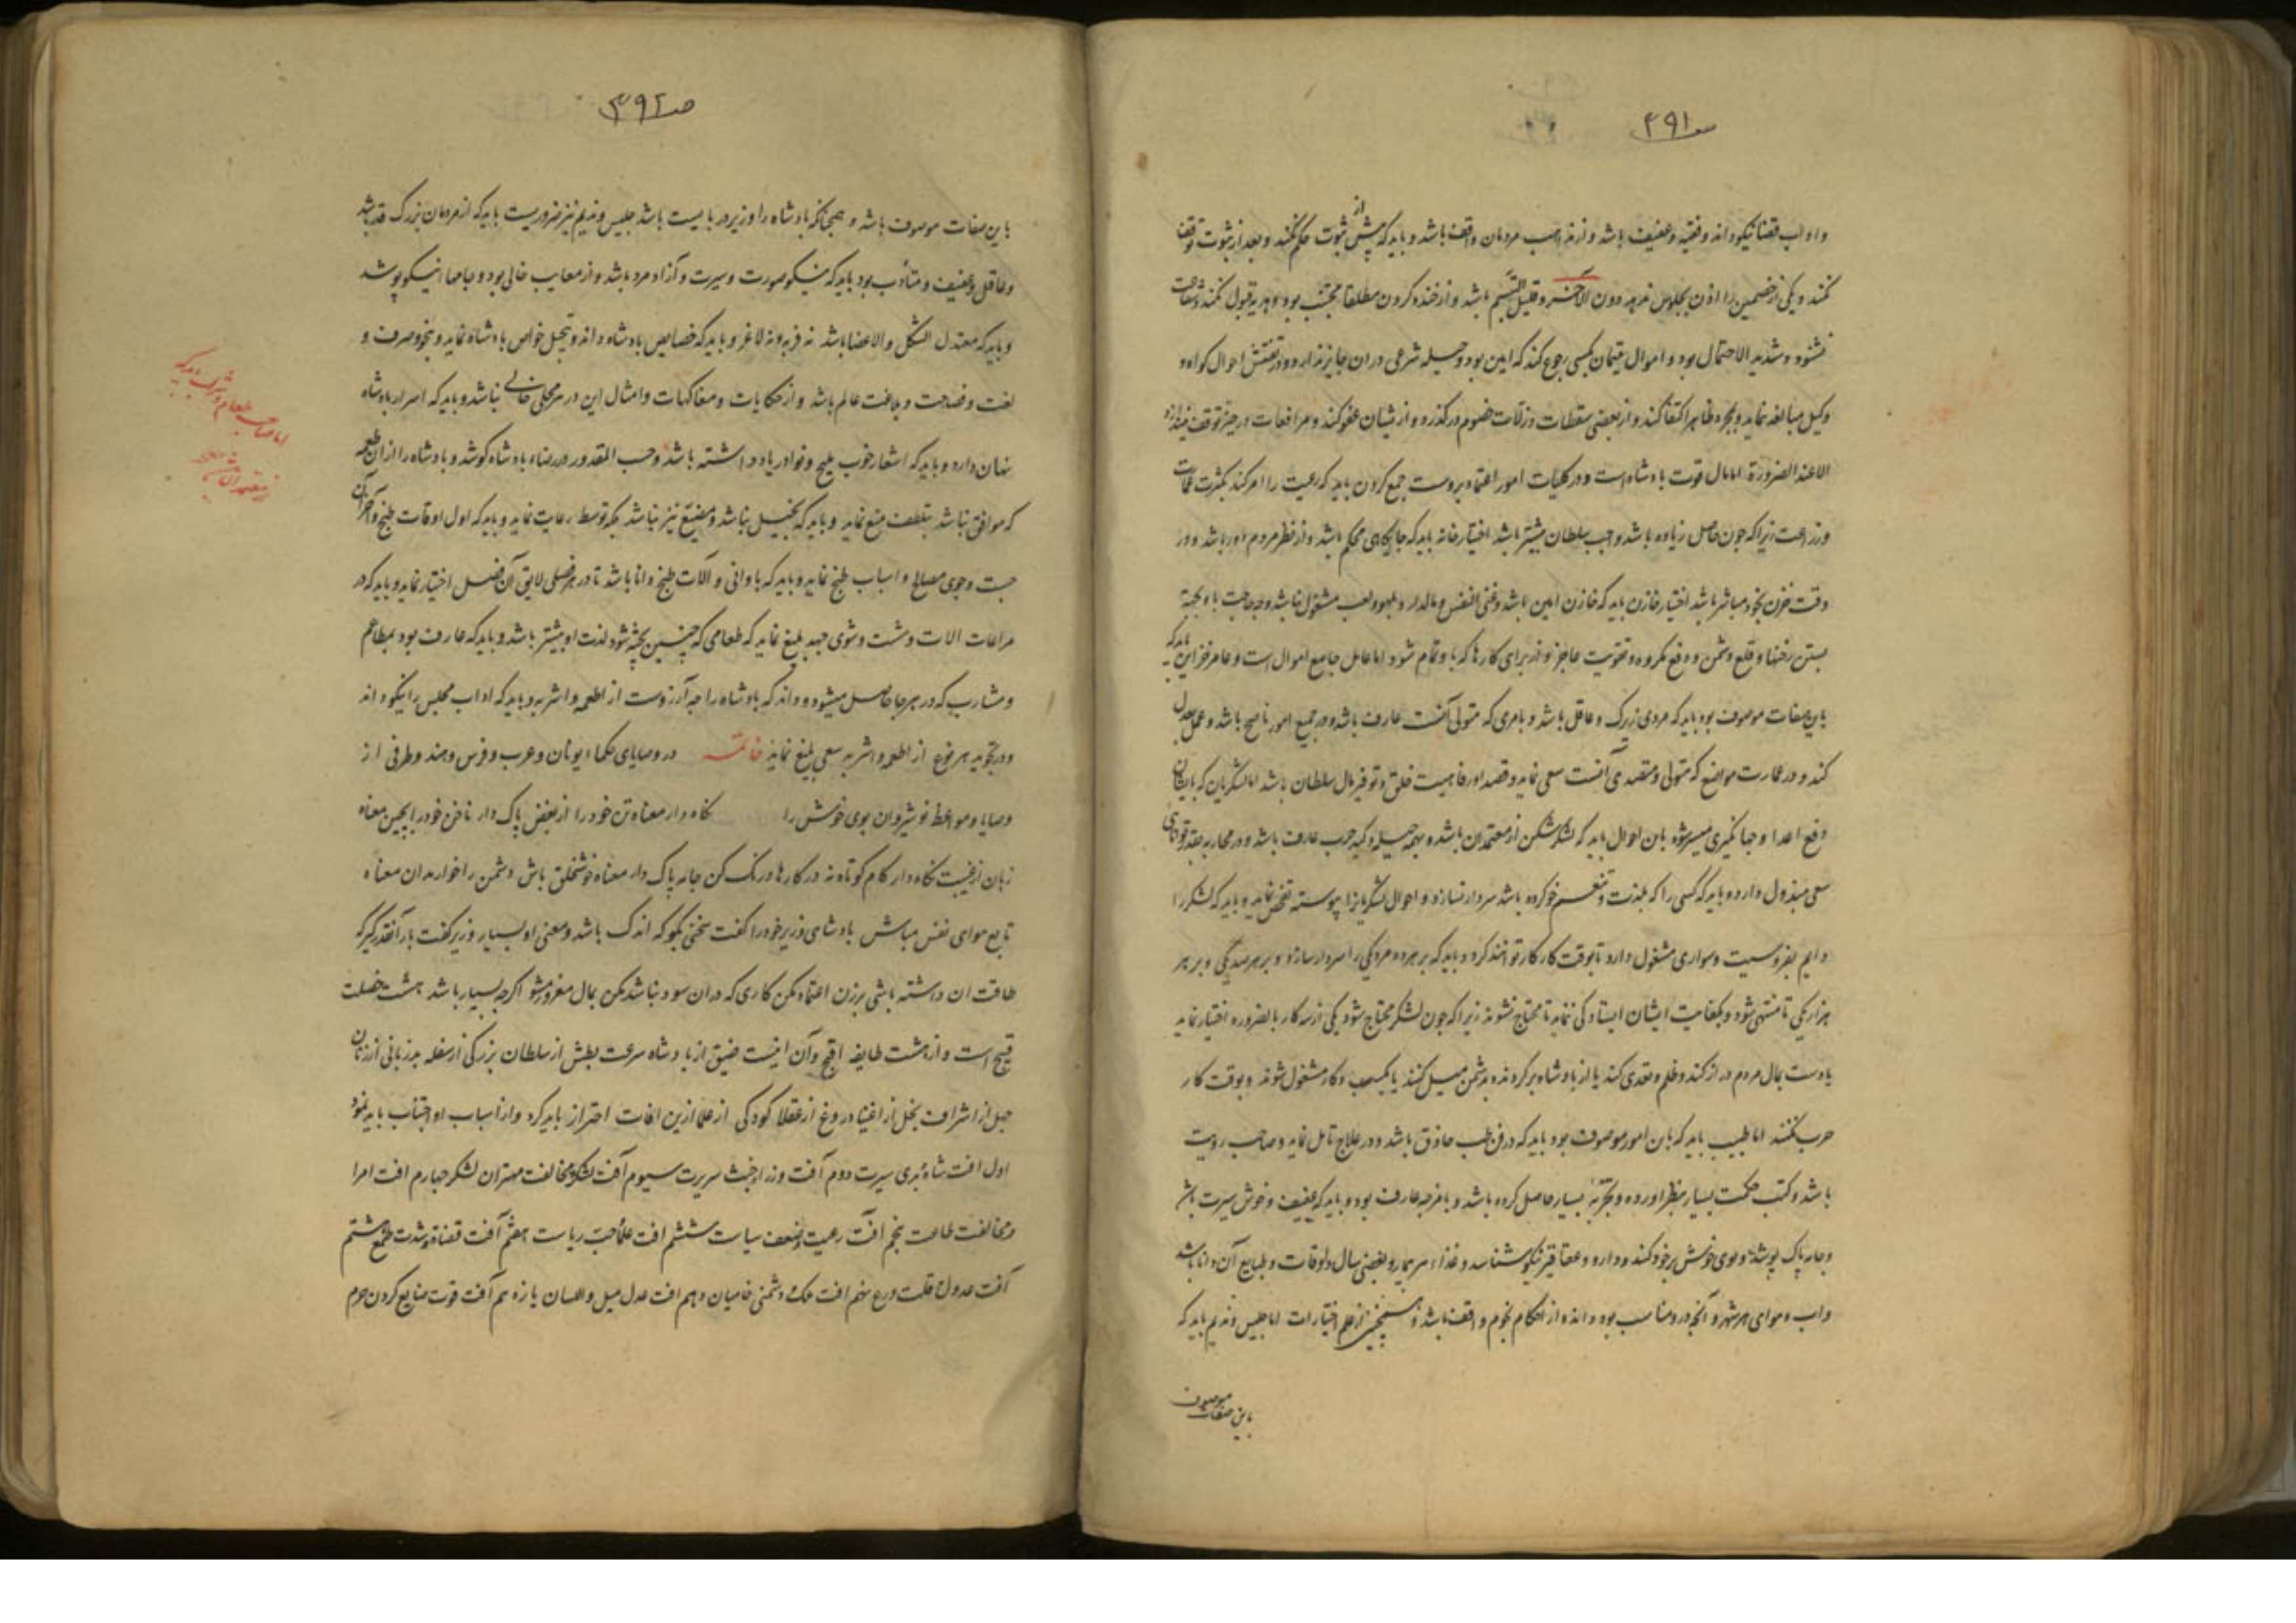 ص ۳۹۱
واداب قضا نیکو داند و فقیه و عفیف باشد و از مذاهب مردمان واقف باشد و باید که پیش از ثبوت حکم نکند و بعد از ثبوت توقف
نکند و یکی از خصمین را اذن بجلوس ندهد دون الآخر و قلیل التبسم باشد و از خنده کردن مطلقا مجتنب بود و هدیه قبول نکند و شفاعت
نشنود و شدید الاحتمال بود و اموال یتیمان بکسی رجوع کند که امین بود و حیله شرعی دران جایز ندارد و در تفتیش احوال کواه و
وکیل مبالغه نماید و بمجرد ظاهر اکتفا نکند و از بعضی سقطات و زلات خصوم درگذرد و از ایشان عفو کند و مرافعات در حیز توقف نیندازد
الا عند الضرورة اما مال قوت بادشاه است و در کلیات امور اعتماد بروست جمع کردن باید که رعیت را امر کند بکثرت عمارت
وزراعت زیرا که چون حاصل زیاده باشد واجب سلطان بیشتر باشد اختیار خانه باید که جایگاهی محکم باشد و از نظر مردم دور باشد و در
وقت خزن بخود مباشر باشد اختیار خازن باید که خازن امین باشد و غنی النفس و مالدار و بلهو و لعب مشغول نباشد وجه حاجت باو بجهة
بستن رخنها و قلع دشمن و دفع مکروه و تقویت عاجز و از برای کارها که باو تمام شود اما عامل جامع اموال است و عامر خزاین باید که
باین صفات موصوف بود باید که مردی زیرک و عاقل باشد و بامری که متولی آنست عارف باشد و در جمیع امور ناصح باشد و عمل بعدل
کند و در عمارت مواضع که متولی و متصدی آنست سعی نماید و قصد او رفاهیت خلق و توفیر مال سلطان باشد اما لشکریان که بایشان
دفع اعدا و جهانگیری میسر شود باین احوال باید که لشکرشکن از معتمدان باشد و بهمه حیله و کید حرب عارف باشد و در محاربه بقدر توانای
سعی مبذول دارد و باید که کسی را که بلذت و تنعم خو کرده باشد سردار نسازد و احوال لشکریانرا پیوسته تفحص نماید و باید که لشکر را
دایم بفروسیت و سواری مشغول دارد تا بوقت کار کار توانند کرد و باید که بر هر ده مرد یکی را سردار سازد و بر هر صد یکی و بر هر
هزار یکی تا منتهی شود و بکفایت ایشان ایستادگی نماید تا محتاج نشوند زیرا که چون لشکر محتاج شود یکی از سه کار بالضروره اختیار نماید
یا دست بمال مردم دراز کند و ظلم و تعدی کند یا از بادشاه برگردند و بدشمن میل کنند یا بکسب و کار مشغول شوند و بوقت کار
حرب نکنند اما طبیب باید که بان امور موصوف بود باید که در فن طب حاذق باشد و در علاج تامل نماید و صاحب رویت
باشد و کتب حکمت بسیار بنظر اورده و تجربه بسیار حاصل کرده باشد و بامزجه عارف بود و باید که عفیف و خوش سیرت باشد
وجامه پاک پوشد و بوی خوش بر خود کند و دارو و عقاقیر نیکو شناسد و غذاء هر بیمار و بفصی سال و اوقات و طبایع آن دانا باشد
واب و هوای هر شهر و آنچه درو مناسب بود داند و از احکام نجوم واقف باشد و همچنین از علم اختیارات اما جلیس و ندیم باید که
باین صفات موصوف
ص ۳۹۲
باین صفات موصوف باشد و همچنانکه بادشاه را وزیر در بایست باشد جلیس و ندیم نیز ضروریست باید که از مردمان بزرک قدر باشد
وعاقل و عفیف و متأدب بود باید که نیکو صورت و سیرت و آزاد مرد باشد و از معایب خالی بود و جامها نیکو پوشد
وباید که معتدل الشکل والاعضا باشد نه فربه و نه لاغر و باید که خصایص بادشاه داند و تبجیل خواص بادشاه نماید و بنحو و صرف و
لغت و فصاحت و بلاغت عالم باشد و از حکایات و مفاکهات و امثال این در هر محلی خالی نباشد و باید که اسرار بادشاه
نهان دارد و باید که اشعار خوب ملیح و نوادر یاد داشته باشد و حسب المقدور در رضاء بادشاه کوشد و بادشاه را از ان طعمه
که موافق نباشد بتلطف منع نماید و باید که بخیل نباشد و مضیع نیز نباشد بلکه توسط رعایت نماید و باید که اول اوقات طبخ و آخر آن
جست و جوی مصالح و اسباب طبخ نماید و باید که باوانی و آلات طبخ دانا باشد تا در هر فصلی لایق آن فصل اختیار نماید و باید که در
مراعات الات و شست و شوی جهد بلیغ نماید که طعامی که چنین پخته شود لذت او بیشتر باشد و باید که عارف بود بمطاعم
ومشارب که در هر جا حاصل میشود و داند که بادشاه را چه آرزوست از اطعمه و اشربه و باید که اداب مجلس را نیکو داند
ودر تجوید هر نوع از اطعمه و اشربه سعی بلیغ نماید خاتمه در وصایای حکماء یونان و عرب و فرس و هند و طرفی از
وصایا و مواعظ نوشیروان بوی خوش را نکاه دار معناه تن خود را از بعض پاک دار ناخن خود را بچین معناه
زبان از غیبت نکاه دار کام کوتاه نه در کارها درنک کن جامه پاک دار معناه خوش خلق باش دشمن را خوار مدان معناه
تابع هوای نفس مباش بادشای وزیر خود را کفت سخنی بکو که اندک باشد و معنی او بسیار وزیر کفت بار آنقدر گیر که
طاقت ان داشته باشی بر زن اعتماد مکن کاری که دران سود نباشد مکن بمال مغرور مشو اکرچه بسیار باشد هشت خصلت
قبیح است و از هشت طایفه اقبح و آن اینست ضیق از بادشاه سرعت بطش از سلطان بزرکی از سفله بدزبانی از زنان
جهل از اشراف بخل از اغنیا دروغ از عقلا کودکی از علما ازین افات احتراز باید کرد و از اسباب او اجتناب باید نمود
اول افت شاه بدی سیرت دوم آفت وزراء خبث سریرت سیوم آفت لشکر مخالفت مهتران لشکر چهارم افت امرا
ومخالفت طاعت پنجم آفت رعیت و ضعف سیاست ششم افت علما حب ریاست هفتم آفت قضاة شدت طمع هشتم
آفت عدول قلت ورع نهم افت ملک دشمنی حامیان دهم افت عدل میل والسان یازدهم آفت قوت ضایع کردن حزم
اما صاحب طعام و شراب باید که
از معتمدان باشد